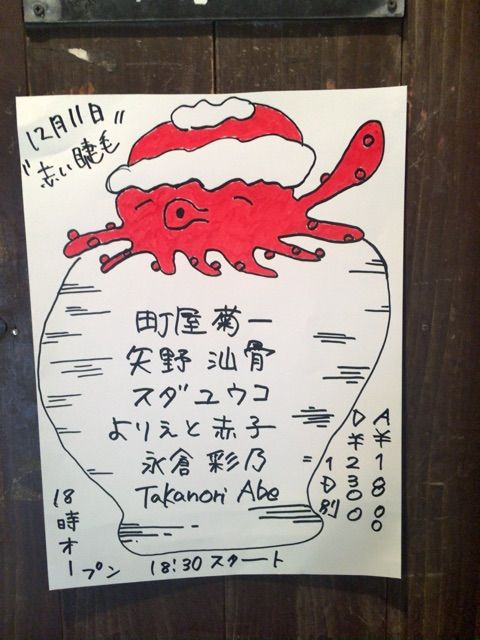 12月11日
"赤い睫毛"
町屋菊一
矢野汕骨
スダユウコ
よりえと赤子
永倉彩乃
Takanori Abe
A¥1800
D¥2300
=1D別
18時オープン
18:30スタート